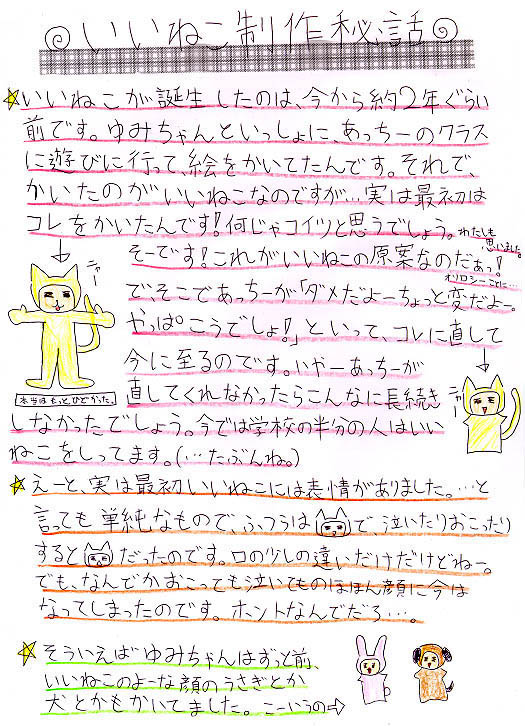 いいねこ制作秘話
☆いいねこが誕生したのは、今から約2年ぐらい
前です。ゆみちゃんといっしょに、あっちーのクラス
に遊びに行って、絵をかいてたんです。それで、
かいたのがいいねこなのですが…実は最初は
コレをかいたんです!何じゃコイツと思うでしょう。
わたしも
思いました。
そーです!これがいいねこの原案なのだぁっ!
オソロシーことに…
で、そこであっちーが「ダメだよーちょっと変だよー。
やっぱこうでしょ!」といって、コレに直して
今に至るのです。いやーあっちーが
直してくれなかったらこんなに長続き
しなかったでしょう。今では学校の半分の人はいい
ねこをしってます。(…たぶんね。)
ニャー
本当はもっとひどかった。
ニャー
☆えーと、実は最初いいねこには表情がありました。…と
言っても単純なもので、ふつうはで、泣いたりおこったり
するとだったのです。口の少しの違いだけだけどねー。
でも、なんでかおこっても泣いてものほほん顔に今は
なってしまったのです。ホントなんでだろ…。
☆そういえばゆみちゃんはずっと前、
いいねこのよーな顔のうさぎとか
犬とかもかいてました。こーいうの⇨